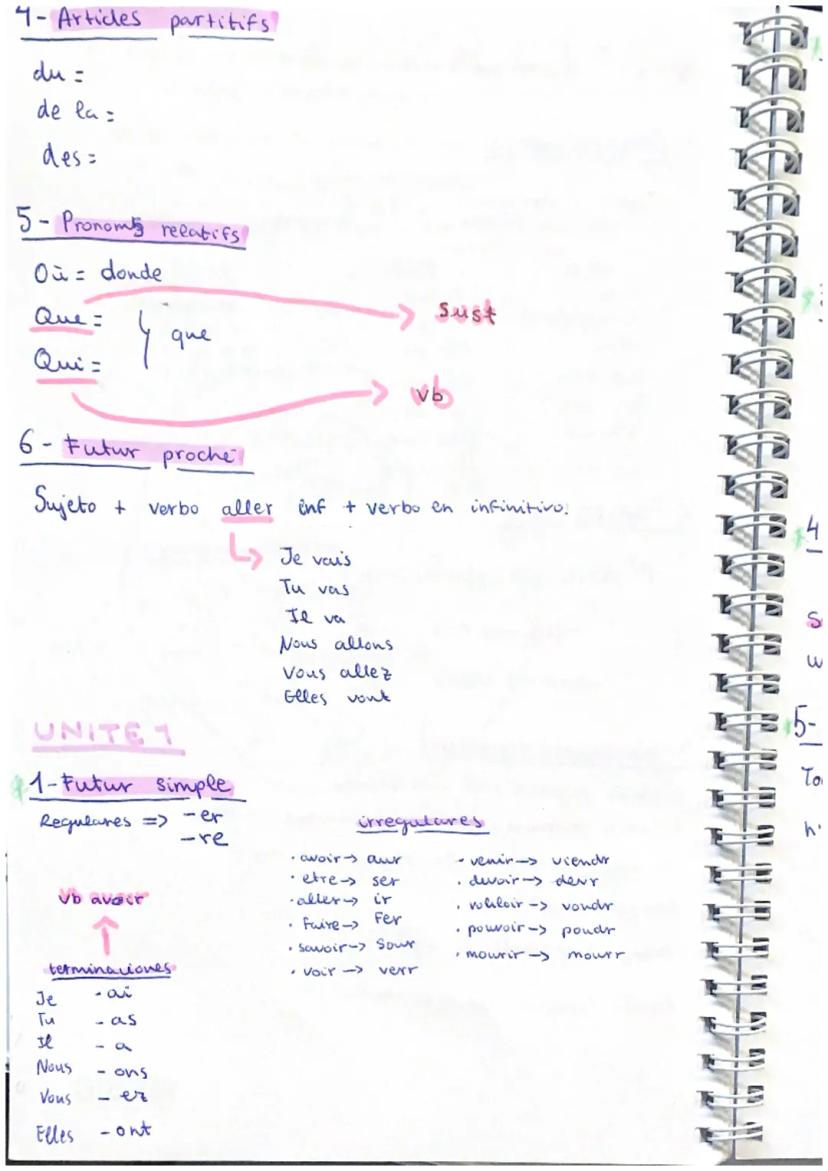 4- Articles partitifs
du =
de la =
des =
5- Pronoms relatifs
Où = donde
Que = } que
Qui =
sust
vb
6- Futur proche
Sujeto + verbo aller inf + verbo en infinitivo.
Je vais
Tu vas
Il va
Nous allons
Vous allez
Elles vont
UNITE 1
1- Futur simple
Regulares => -er
-re
vb avoir
terminaciones
Je -ai
Tu -as
Il -a
Nous -ons
Vous -ez
Elles -ont
irregulares
· avoir -> aur
· etre -> ser
· aller -> ir
· Faire -> Fer
· savoir -> Saur
· voir -> verr
- venir -> viendr
· devoir -> devr
· vouloir -> voudr
· pouvoir -> poudr
· mourir -> mourr
4
5-